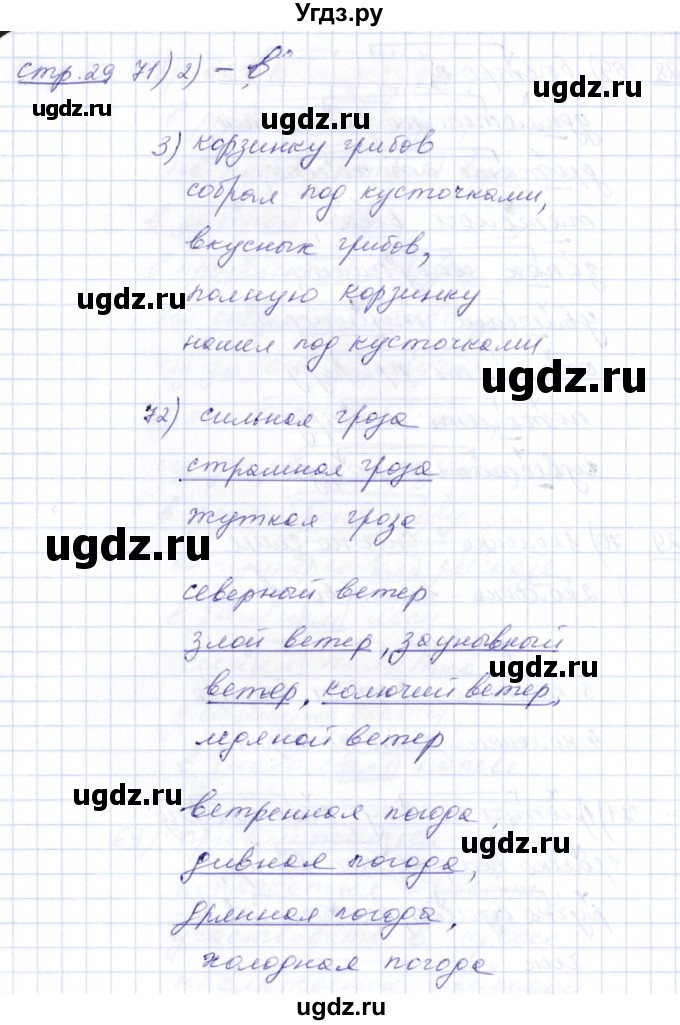 Угдз.ру
стр.29 71) 2) – „в"
ugdz.ru
ugdz.ru
3) корзинку грибов
собрал под кусточками,
вкусных грибов,
ugdz.ru
полную корзинку
нашел под кусточками
ugdz.ru
72) сильная гроза
страшная гроза
жуткая гроза
ugdz.ru
северный ветер
злой ветер, заунывный
ugdz.ru
ветер, колючий ветер,
ледяной ветер
ugdz.ru
ветренная погода,
ugdz.ru
дивная погода,
дрянная погода,
холодная погода
ugdz.ru